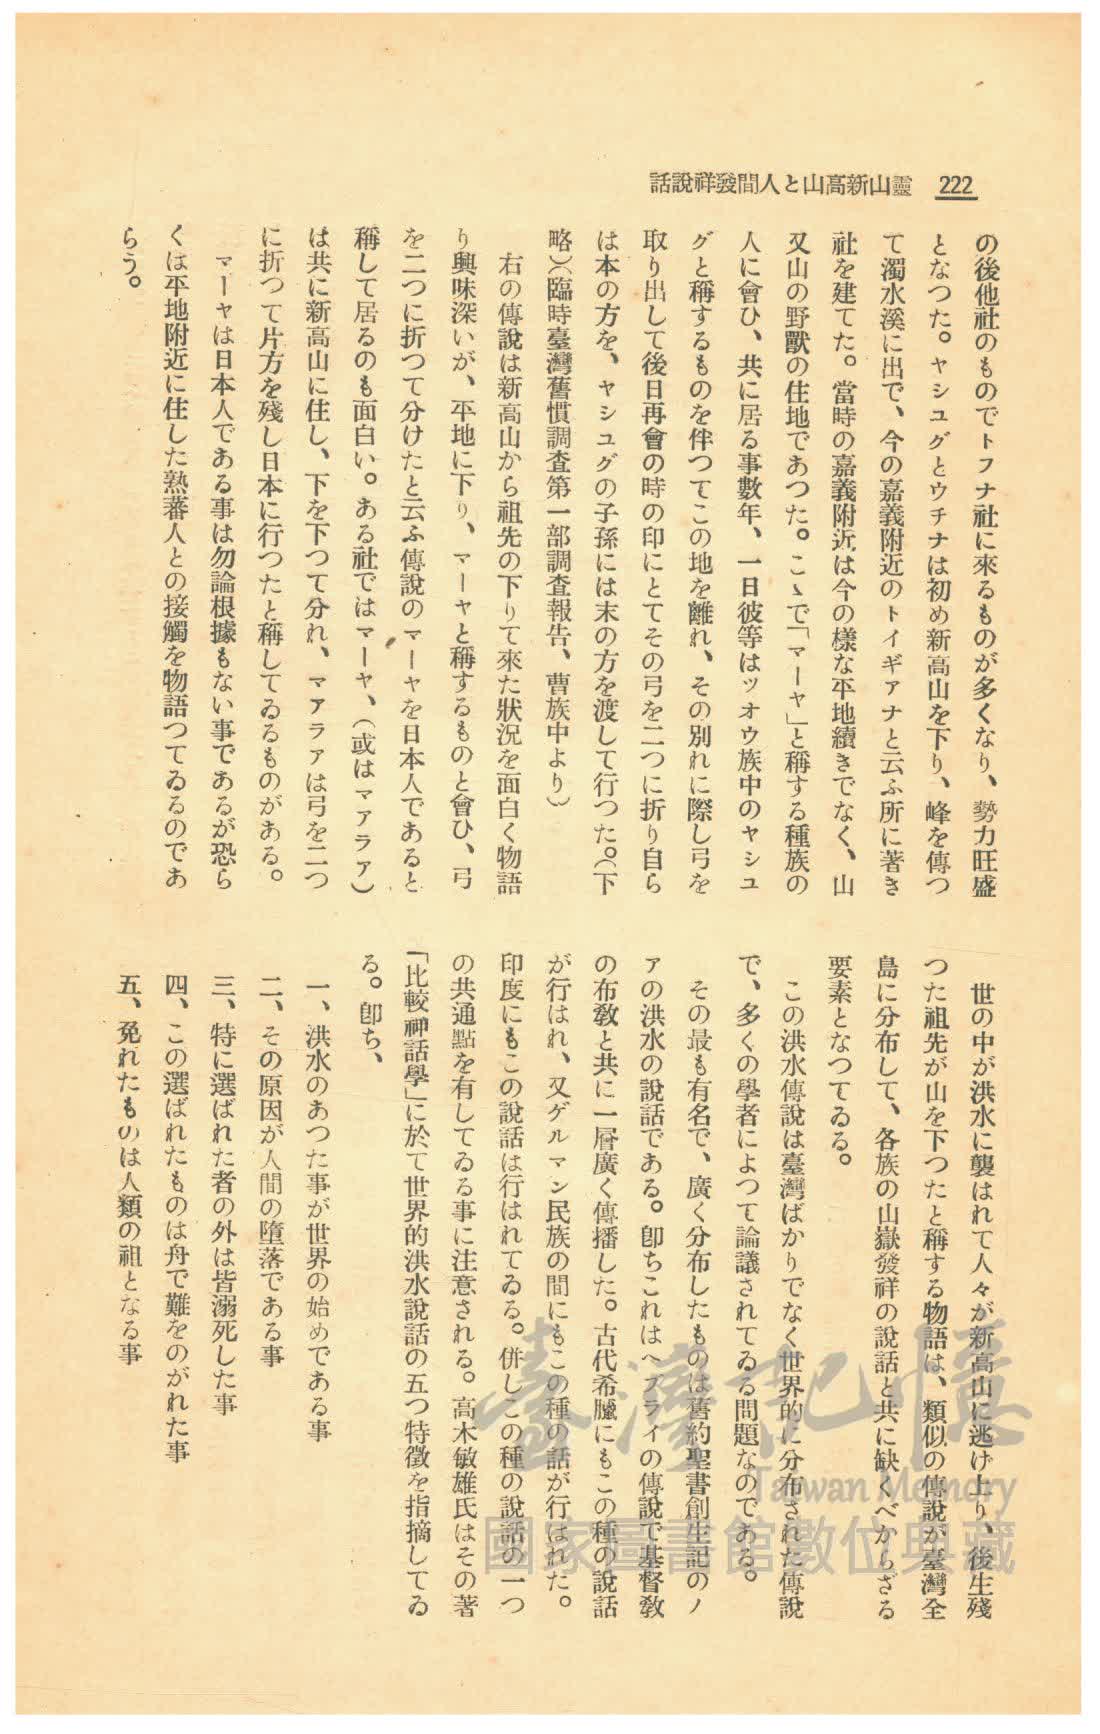 222
靈山新高山と人間發祥說話
の後他社のものでトフナ社に來るものが多くなり、勢力旺盛
となつた。ヤシユグとウチナは初め新高山を下り、峰を傳つ
て濁水溪に出で、今の嘉義附近のトイギアナと云ふ所に著き
社を建てた。當時の嘉義附近は今の樣な平地續きでなく、山
又山の野獸の住地であつた。こゝで「マーヤ」と稱する種族の
人に會ひ、共に居る事數年、一日彼等はツオウ族中のヤシユ
グと稱するものを伴つてこの地を離れ、その別れに際し弓を
取り出して後日再會の時の印にとてその弓を二つに折り自ら
は本の方を、ヤシユグの子孫には末の方を渡して行つた。(下
略)(臨時臺灣舊慣調査第一部調査報告、曹族中より)
右の傳說は新高山から祖先の下りて來た狀況を面白く物語
り興味深いが、平地に下り、マーヤと稱するものと會ひ、弓
を二つに折つて分けたと云ふ傳說のマーヤを日本人であると
稱して居るのも面白い。ある社ではマーヤ、(或はマアラア)
は共に新高山に住し、下を下つて分れ、マアラアは弓を二つ
に折つて片方を殘し日本に行つたと稱してゐるものがある。
マーヤは日本人である事は勿論根據もない事であるが恐ら
くは平地附近に住した熟蕃人との接觸を物語つてゐるのであ
らう。
世の中が洪水に襲はれて人々が新高山に逃げ上り、後生殘
つた祖先が山を下つたと稱する物語は、類似の傳說が臺灣全
島に分布して、各族の山嶽發祥の說話と共に缺くべからざる
要素となつてゐる。
この洪水傳說は臺灣ばかりでなく世界的に分布された傳說
で、多くの學者によつて論議されてゐる問題なのである。
その最も有名で、廣く分布したものは舊約聖書創生記のノ
アの洪水の說話である。卽ちこれはヘブライの傳說で基督敎
の布敎と共に一層廣く傳播した。古代希臘にもこの種の說話
が行はれ、又ゲルマン民族の間にもこの種の話が行はれた。
印度にもこの說話は行はれてゐる。併しこの種の說話の一つ
の共通點を有してゐる事に注意される。高木敏雄氏はその著
「比較神話學」に於て世界的洪水說話の五つ特徵を指摘してゐ
る。卽ち、
一、洪水のあつた事が世界の始めである事
二、その原因が人間の墮落である事
三、特に選ばれた者の外は皆溺死した事
四、この選ばれたものは舟で難をのがれた事
五、免れたものは人類の祖となる事
臺灣記憶
Taiwan Memory
國家圖書館數位典藏